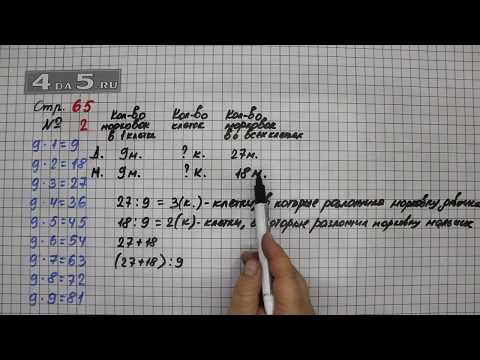 4DA5.RU
Стр. 65
№ 2
Кол-во морковок в 1 клетке
Кол-во клеток
Кол-во морковок во всех клетках
Д. 9м. ? к. 27м.
М. 9м. ? к. 18м.
27 : 9 = 3(к.) - клетки, в которые разложила морковку девочка
18 : 9 = 2(к) - клетки, в которые разложил морковку мальчик
27 + 18
(27+18) : 9
9 · 1 = 9
9 · 2 = 18
9 · 3 = 27
9 · 4 = 36
9 · 5 = 45
9 · 6 = 54
9 · 7 = 63
9 · 8 = 72
9 · 9 = 81